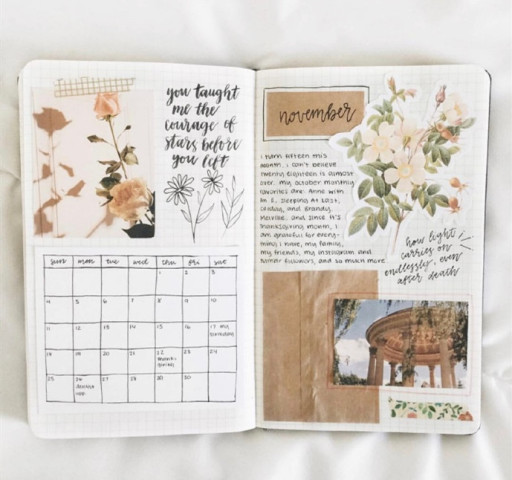 you taught
me the
courage of
stars before
you left
sun mon tue wed thu fri sat
1 2 3
4 5 6 7 8 9 10
11 12 13 14 15 16 17 my
birthday
18 19 20 21 22 23 24
25 26 27 28 29 30
november
i turn fifteen this
month. i can't believe
twenty eighteen is almost
over. my october monthly
favorites are: anne with
an e, sleeping at last,
and brandy
melville. and since it's
thanksgiving month, i
am grateful for every-
thing i have, my family,
my friends, my instagram and
tumblr followers, and so much more
how light
carries on
endlessly, even
after death